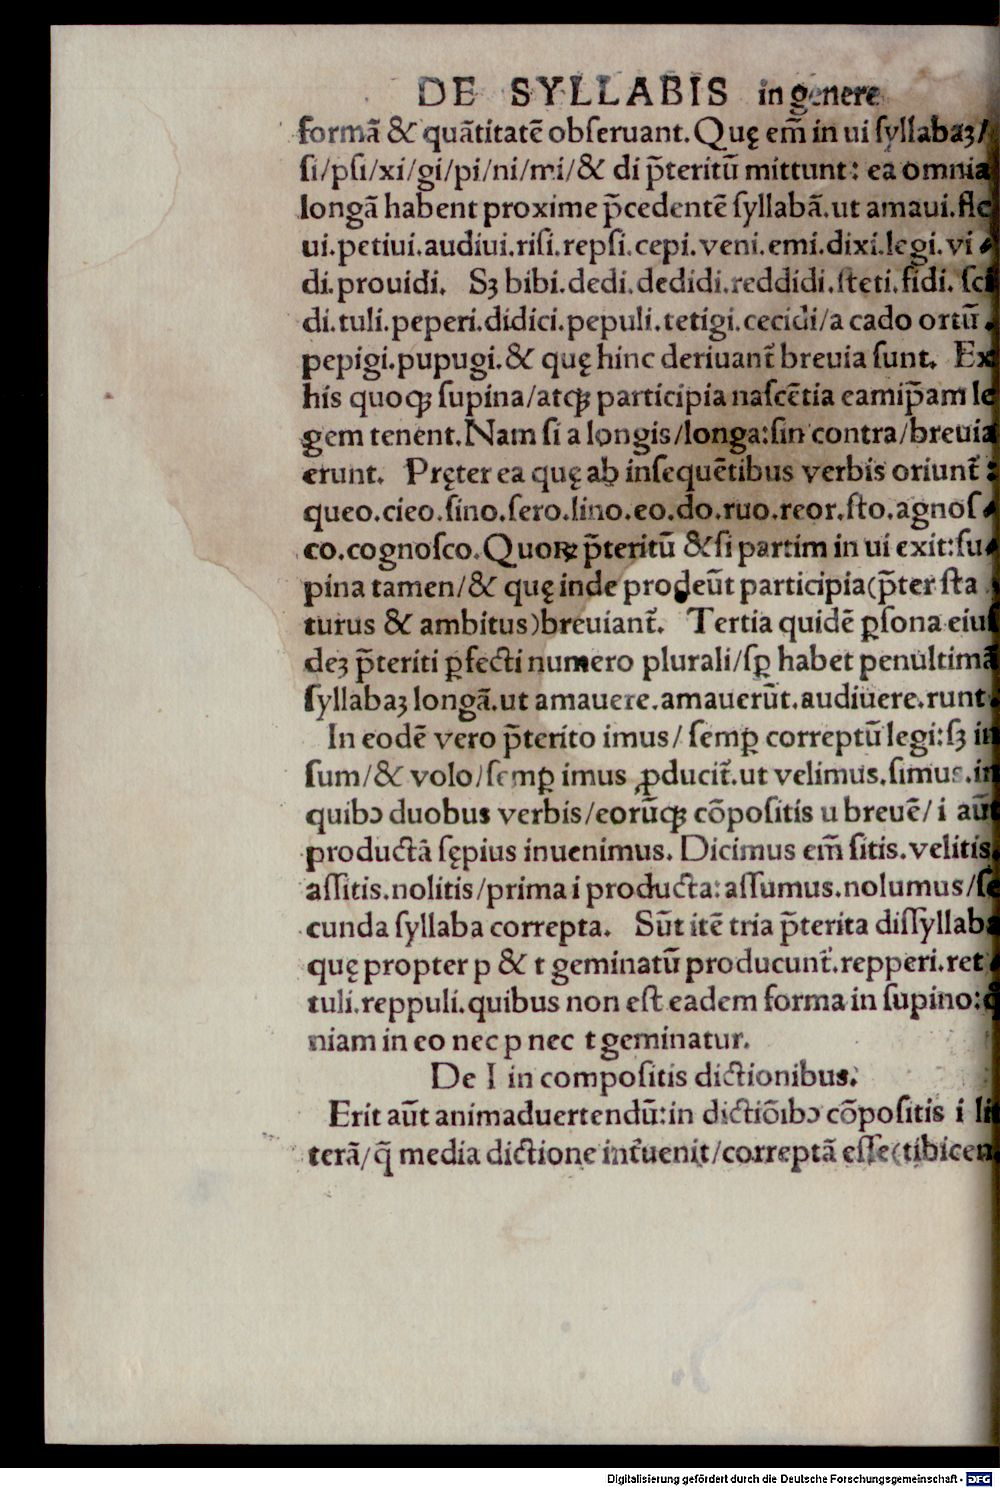 DE SYLLABIS in genere
formā & quātitatē obſeruant. Quę em̄ in ui ſyllabaꝫ/
ſi/pſi/xi/gi/pi/ni/mi/& di p̄teritū mittunt: ea omnia
longā habent proxime p̄cedentē ſyllabā. ut amaui. fle
ui. petiui. audiui. riſi. repſi. cepi. veni. emi. dixi. legi. vi
di. prouidi. Sꝫ bibi. dedi. dedidi. reddidi. ſteti. fidi. ſci
di. tuli. peperi. didici. pepuli. tetigi. cecidi/a cado ortū.
pepigi. pupugi. & quę hinc deriuant̄ breuia ſunt. Ex
his quoqꝫ ſupina/atqꝫ participia naſcētia eamip̄am le
gem tenent. Nam ſi a longis/longa: ſin contra/breuia
erunt. Pręter ea quę ab inſequētibus verbis oriunt̄:
queo. cieo. ſino. ſero. lino. eo. do. ruo. reor. ſto. agnoſ
co. cognoſco. Quoꝝ p̄teritū & ſi partim in ui exit: ſu
pina tamen/& quę inde prodeūt participia(p̄ter ſta
turus & ambitus)breuiant̄. Tertia quidē ꝑſona eiuſ
deꝫ p̄teriti ꝑfecti numero plurali/ſꝑ habet penultimā
ſyllabaꝫ longā. ut amauere. amauerūt. audiuere. runt.
In eodē vero p̄terito imus/ ſemꝑ correptū legi: ſꝫ in
ſum/& volo/ſemꝑ imus ꝓducit̄. ut velimus. ſimus. in
quibꝰ duobus verbis/eorūqꝫ cōpoſitis u breuē/ i aūt
productā ſępius inuenimus. Dicimus em̄ ſitis. velitis.
aſſitis. nolitis/prima i producta: aſſumus. nolumus/ſe
cunda ſyllaba correpta. Sūt itē tria p̄terita diſſyllaba
quę propter p & t geminatū producunt̄. repperi. ret
tuli. reppuli. quibus non eſt eadem forma in ſupino: q̄
niam in eo nec p nec t geminatur.
De I in compoſitis dictionibus.
Erit aūt animaduertendū: in dictiōibꝰ cōpoſitis i lit
terā/q̄ media dictione int̄uenit/correptā eſſe(tibicen
Digitalisierung gefördert durch die Deutsche Forschungsgemeinschaft - DFG